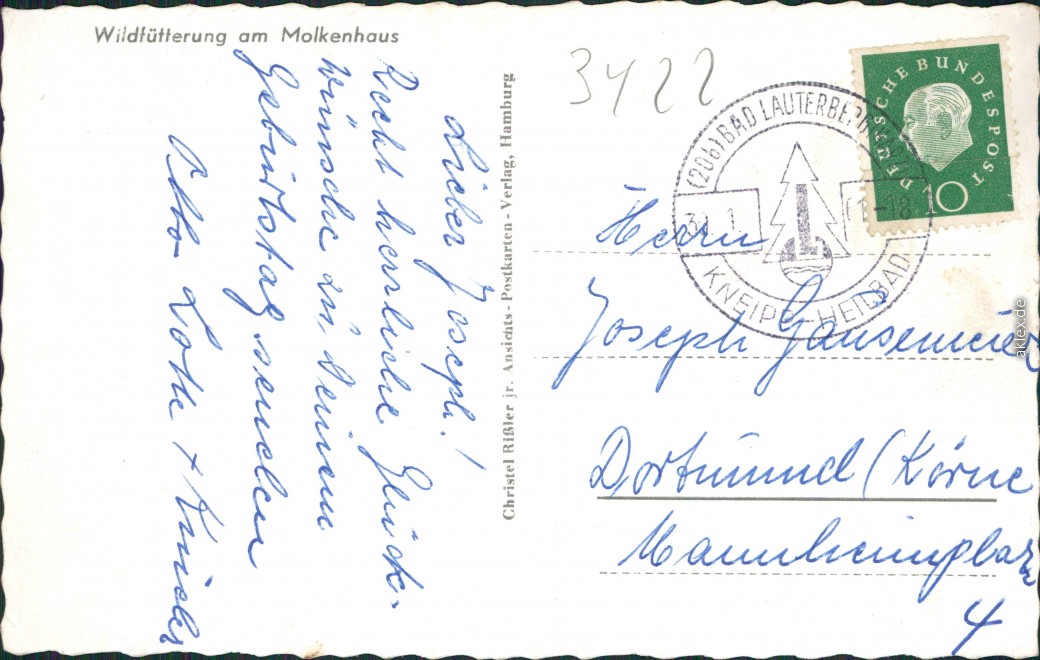 Wildfütterung am Molkenhaus
Lieber Joseph!
Recht herzliche Glück-
wünsche zu Deinem
Geburtstag senden
Otto Lotte + Kinder
Christel Rißler jr. Ansichts-Postkarten-Verlag, Hamburg
3422
(20b) BAD LAUTERBERG
KNEIPP-HEILBAD
DEUTSCHE BUNDESPOST
10
Herrn
Joseph Gausemeier
Dortmund (Körne
4
aklex.de